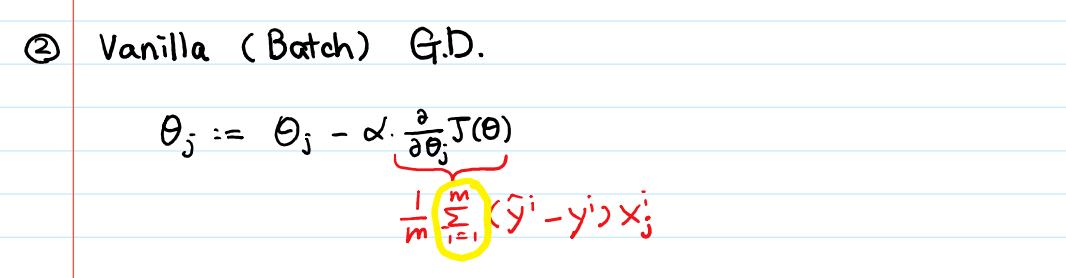 ② Vanilla (Batch) G.D.
θ_j := θ_j - α · ∂/∂θ_j J(θ)
1/m Σ_{i=1}^{m} (ŷ^i - y^i) x_j^i